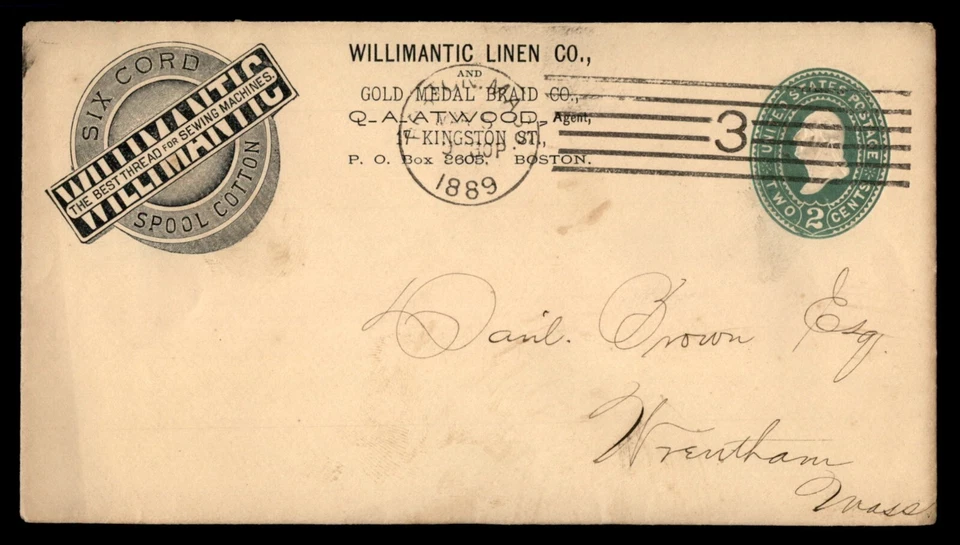 SIX CORD
WILLIMANTIC
THE BEST THREAD FOR SEWING MACHINES.
WILLIMANTIC
SPOOL COTTON
WILLIMANTIC LINEN CO.,
AND
GOLD MEDAL BRAID CO.,
Q. A. ATWOOD, Agent,
17 KINGSTON ST.,
P. O. Box 2605, BOSTON.
1889
3
UNITED STATES POSTAGE
TWO 2 CENTS
Danl. Brown Esq.
Wrentham
Mass